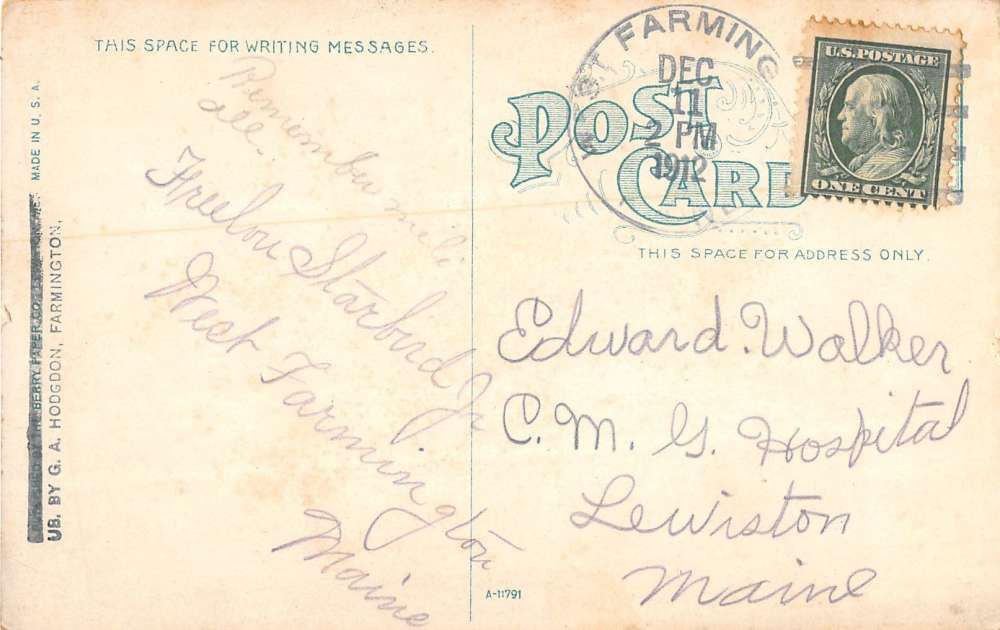 THIS SPACE FOR WRITING MESSAGES.
Remember me to
all.
Freelon Starbird Jr
West Farmington
Maine
MADE IN U.S.A.
THE BERRY PAPER CO.
UB. BY G. A. HODGDON, FARMINGTON.
A-11791
POST CARD
ST FARMING
DEC
11
2 PM
1912
U.S. POSTAGE
ONE CENT
THIS SPACE FOR ADDRESS ONLY.
Edward. Walker
C. M. G. Hospital
Lewiston
Maine